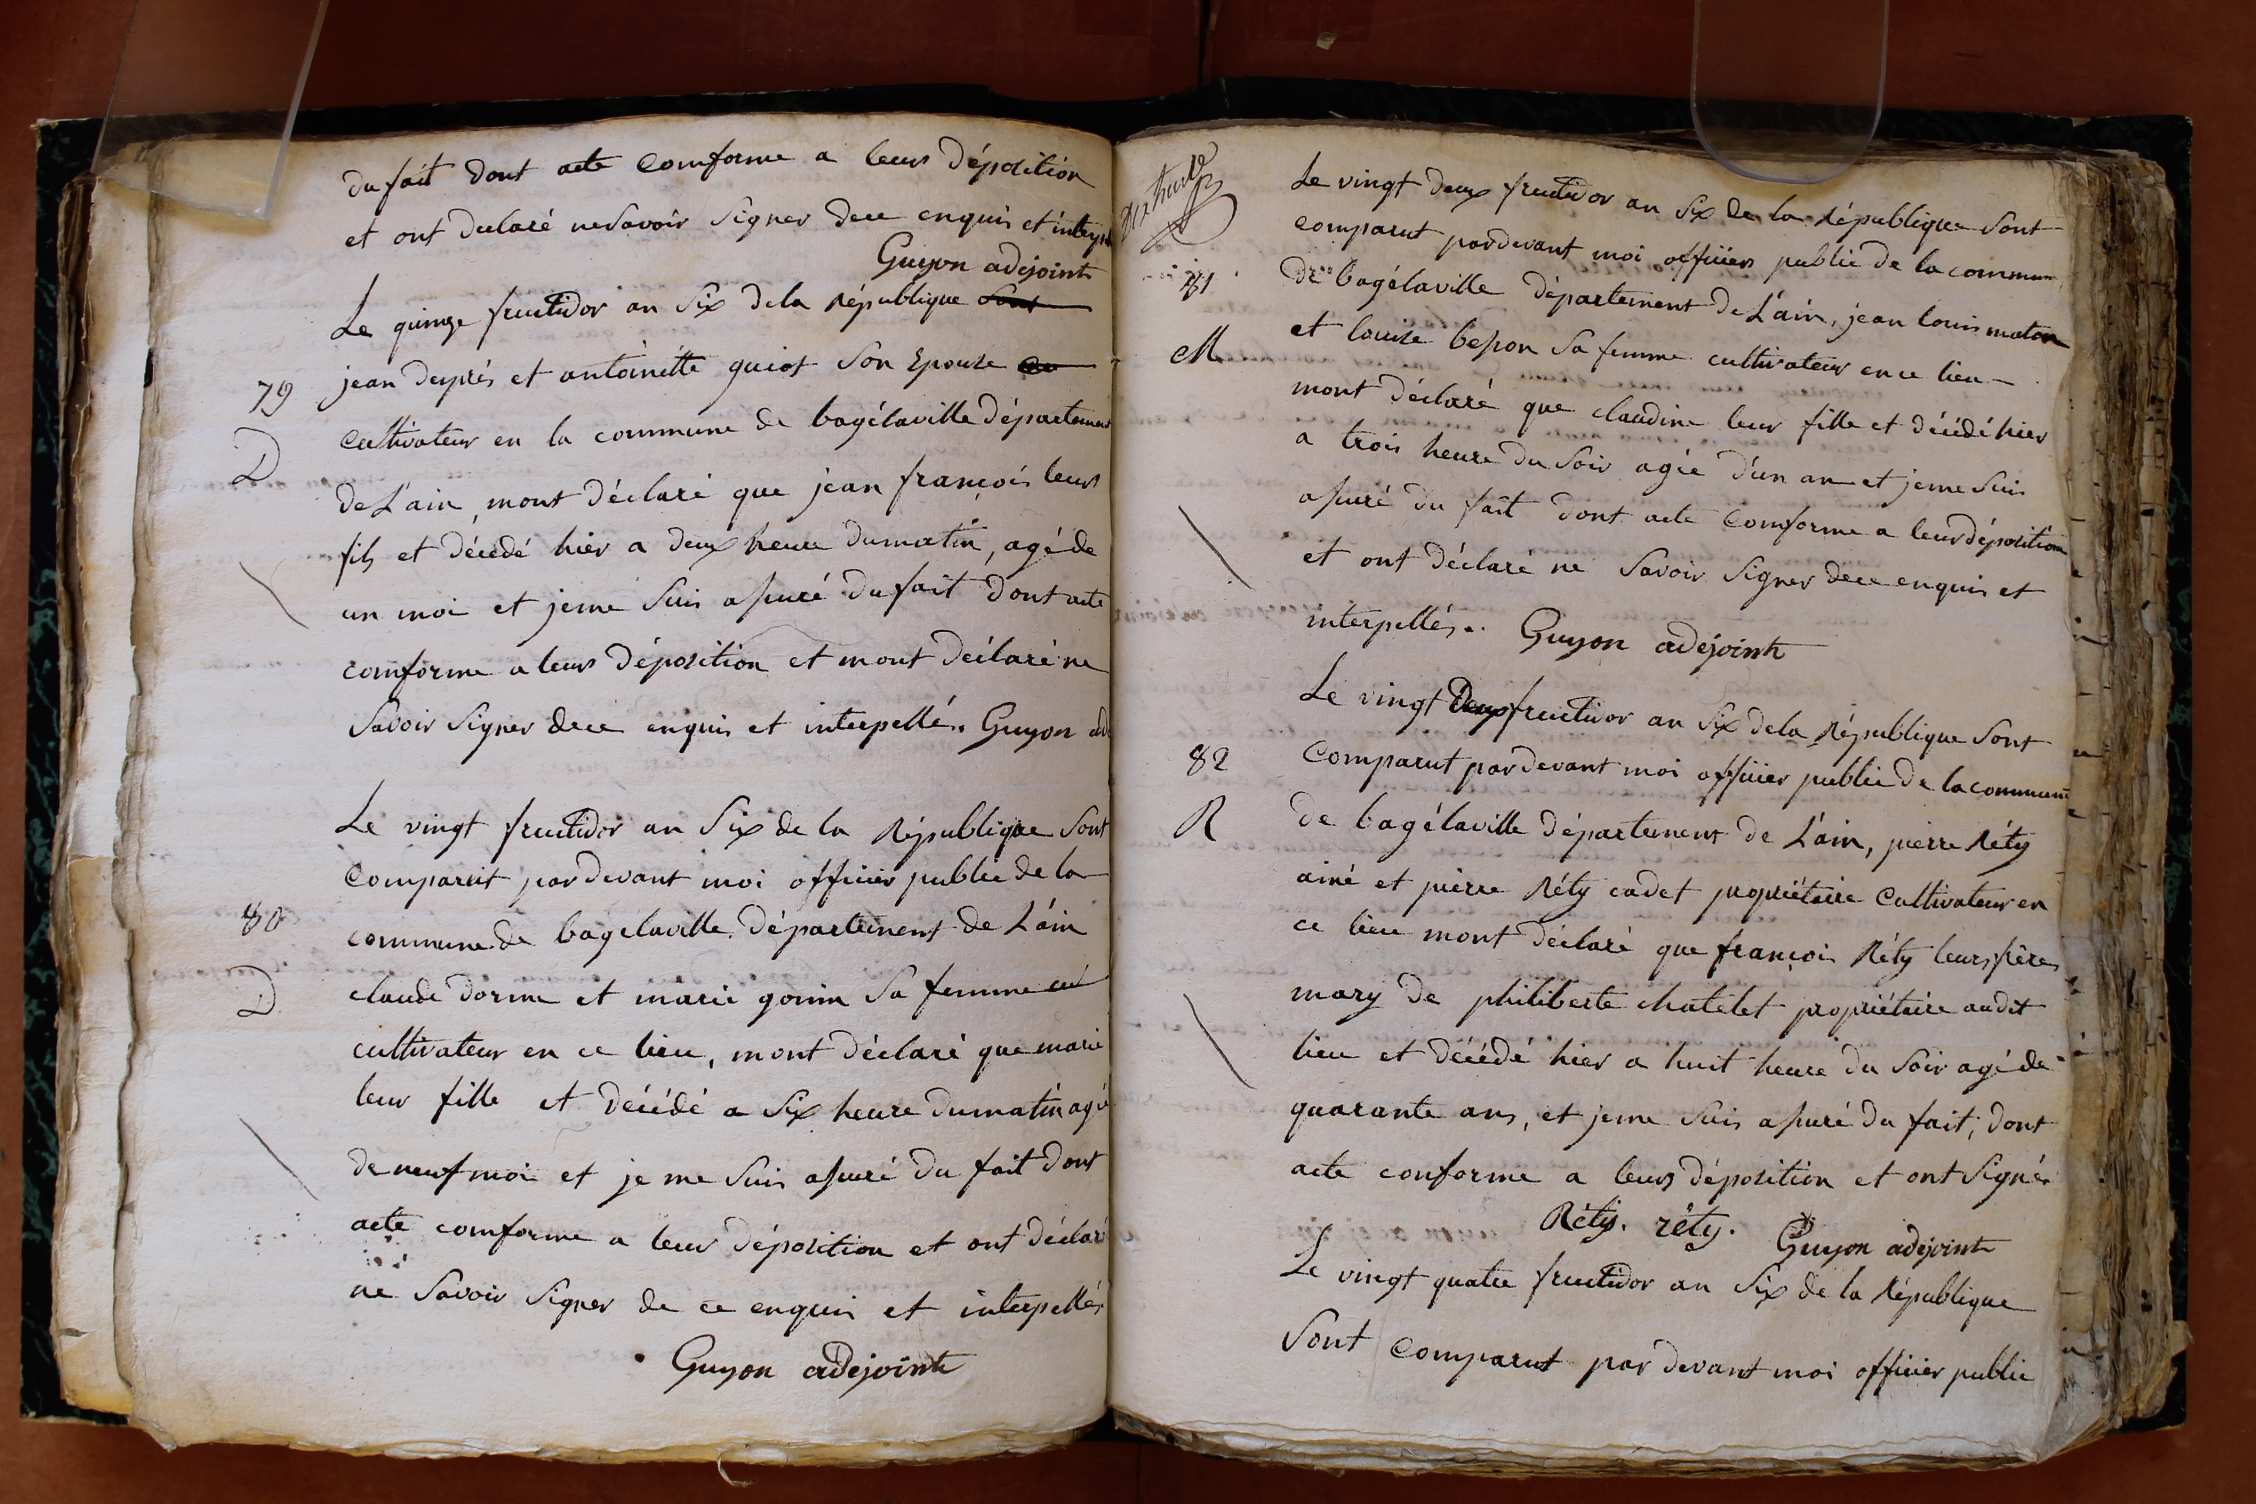 du fait dont acte comforme a leurs déposition
et ont declaré ne savoir signer dece enquis et
Guyon adejoint
Le quinze fructidor an six dela République sont
79
jean desprès et antoinette guiot son Epouse
D
cultivateur en la commune de bagélaville département
de L'ain, mont déclaré que jean françois leurs
fils et décédé hier a deux heure dumatin, agé de
un moi et jeme suis assuré du fait dont acte
comforme a leurs déposition et mont déclaré ne
savoir signer dece enquis et interpellé. Guyon
Le vingt fructidor an six de la République sont
comparut pardevant moi officier public de la
80
commune de bagelaville département de L'ain
D
claude dorme et marie gonin sa femme
cultivateur en ce lieu, mont déclaré que marie
leur fille et décédé a six heure dumatin agé
de neuf moi et je me suis assuré du fait dont
acte comforme a leur déposition et ont déclaré
ne savoir signer de ce enquis et interpellés
Guyon adejoint
Dix huit
Le vingt deux fructidor an six de la République sont
comparut pardevant moi officier public de la commune
81
de bagélaville département de L'ain, jean louis maton
M
et louise besson sa femme cultivateur en ce lieu
mont déclaré que claudine leur fille et décédé hier
a trois heure du soir agée d'un an et jeme suis
assuré du fait dont acte comforme a leur déposition
et ont déclaré ne savoir signer dece enquis et
interpellés. Guyon adejoint
Le vingt deux fructidor an six dela République sont
82
comparut pardevant moi officier public de la commune
R
de bagélaville département de L'ain, pierre Réty
ainé et pierre Réty cadet propriétaire cultivateur en
ce lieu mont déclaré que françois Réty leurs frères
mary de philiberte chatelet propriétaire audit
lieu et décédé hier a huit heure du soir agé de
quarante ans, et jeme suis assuré du fait, dont
acte conforme a leurs déposition et ont signé.
Réty. réty. Guyon adejoint
Le vingt quatre fructidor an six de la République
sont comparut par devant moi officier public